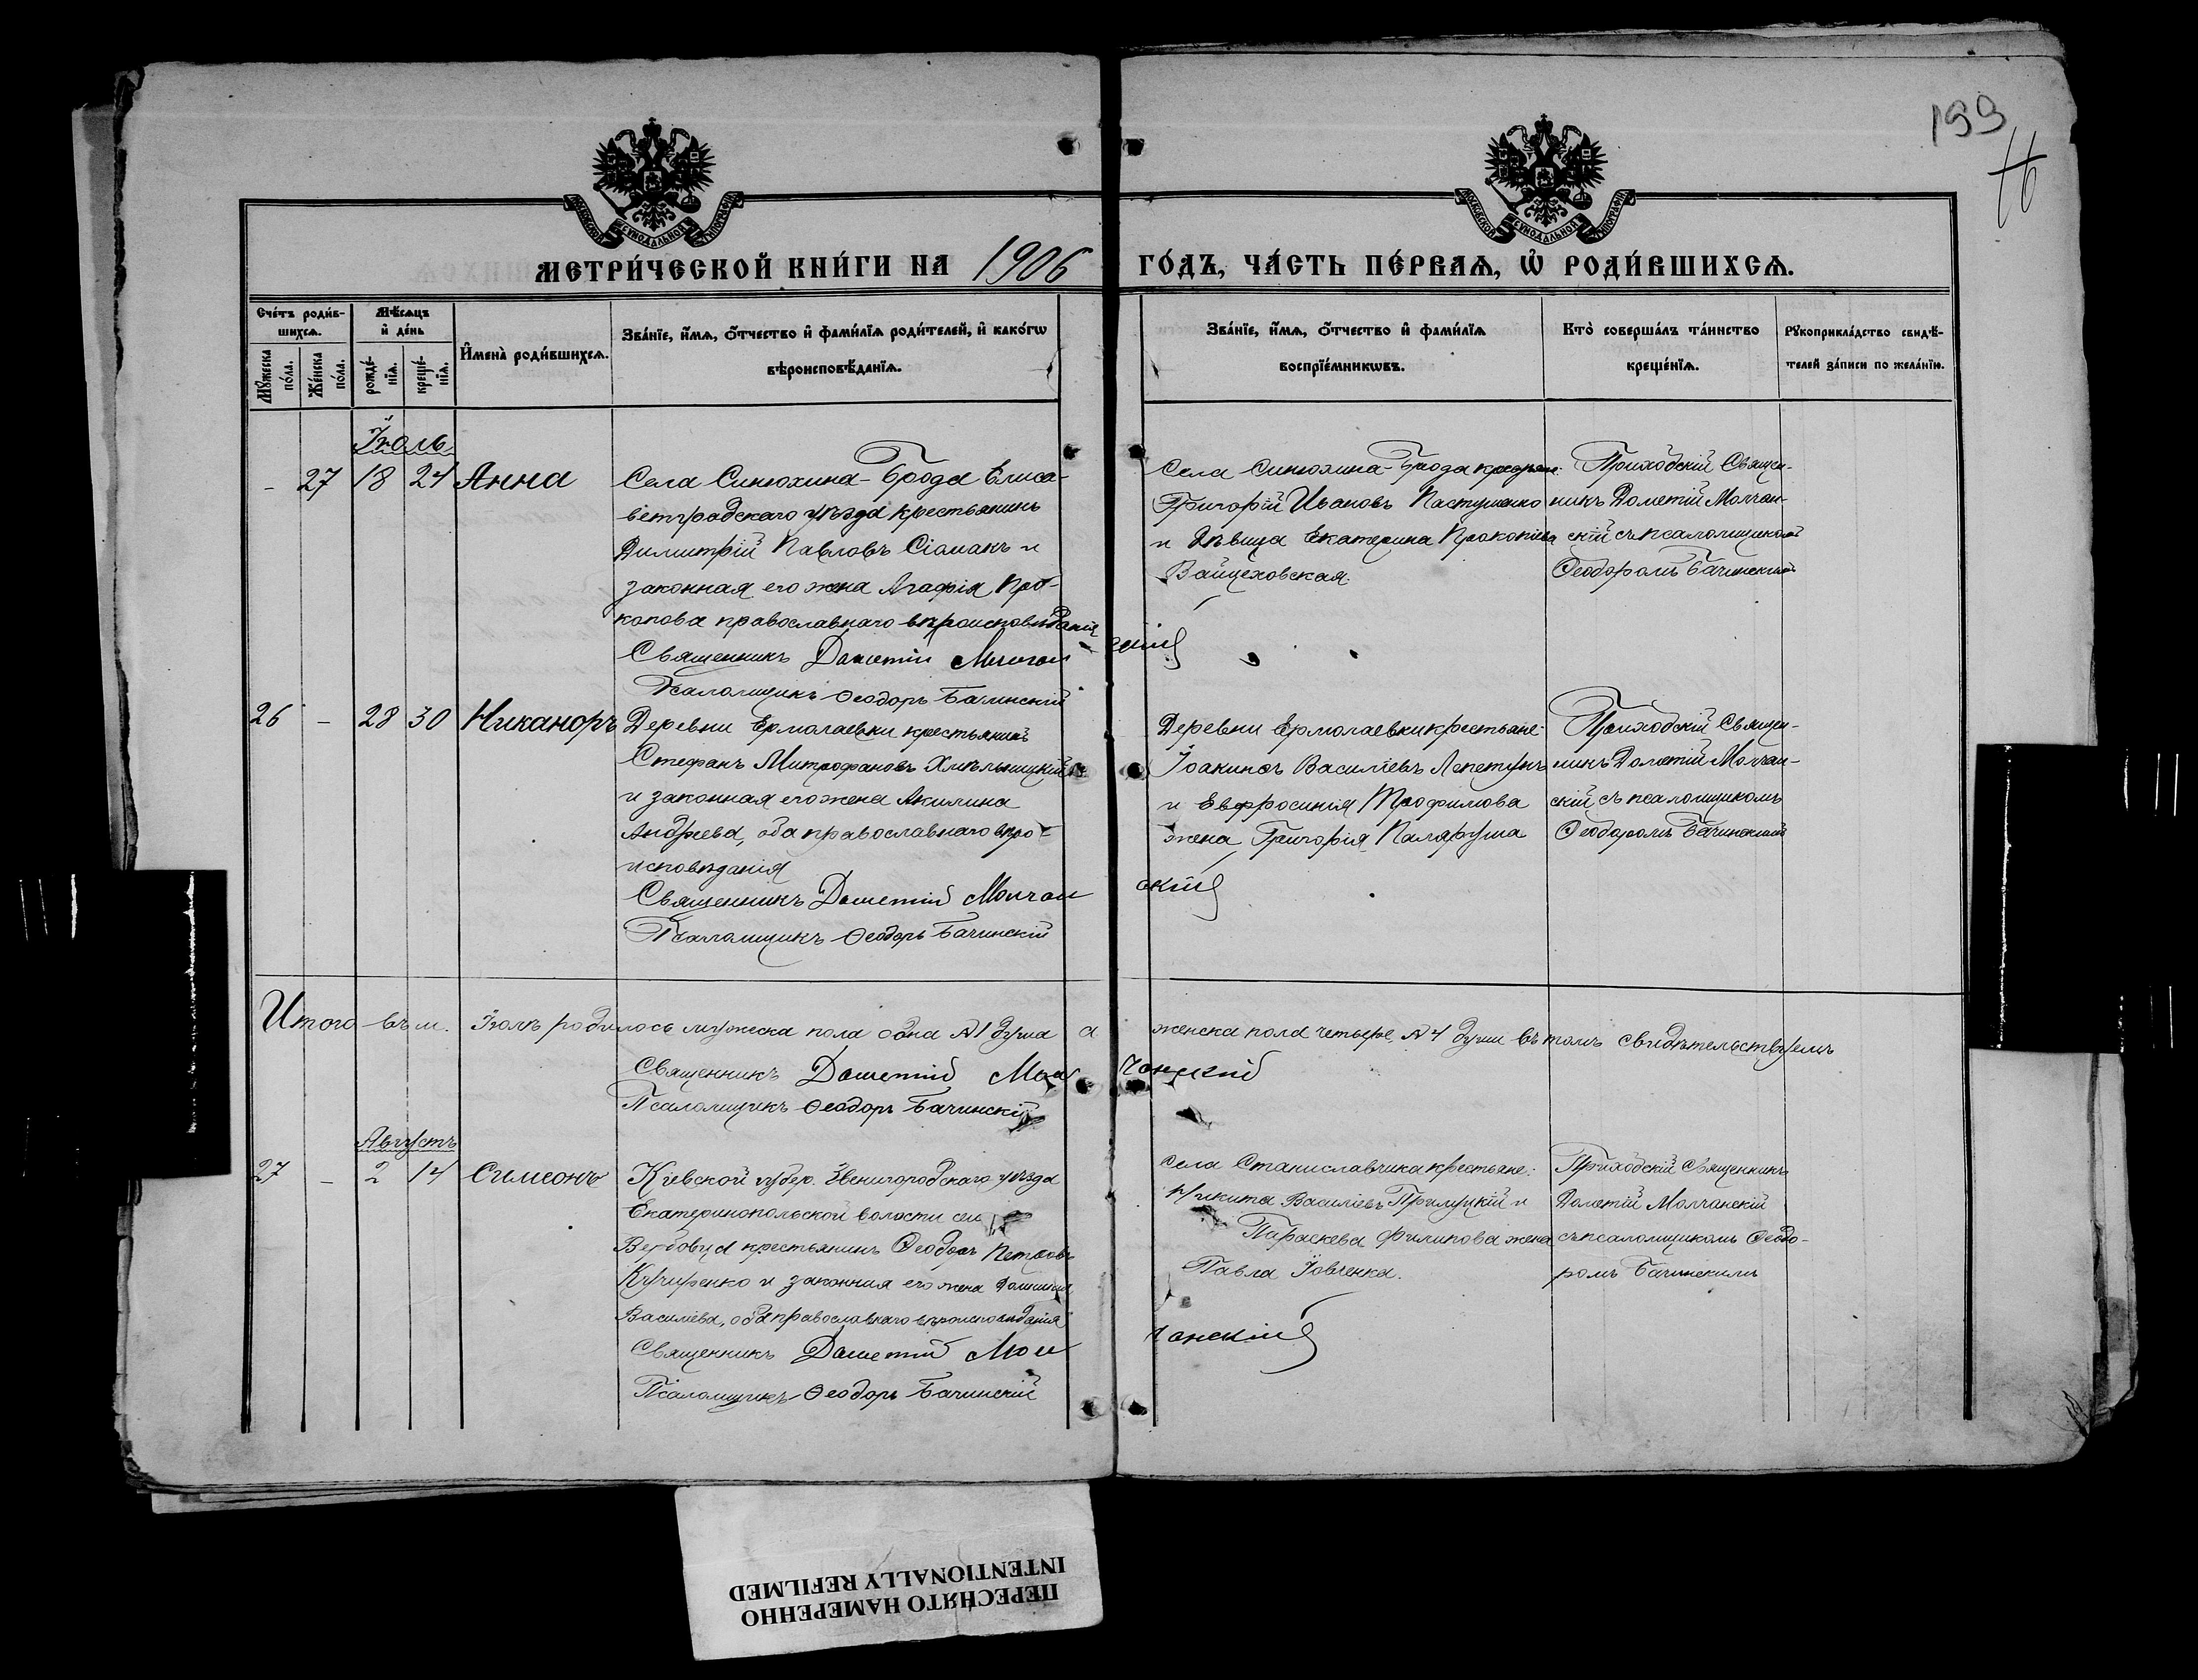 199
16
МОСКОВСКОЙ СѴНОДАЛЬНОЙ ТИПОГРАФІИ
МОСКОВСКОЙ СѴНОДАЛЬНОЙ ТИПОГРАФІИ
МЕТРИ́ЧЕСКОЙ КНИ́ГИ НА 1906 ГО́ДЪ, ЧА́СТЬ ПЕ́РВАѦ, Ѡ҆ РОДИ́ВШИХСѦ.
Сче́тъ роди́в-
шихсѧ.
Мꙋ́жеска по́ла.
Же́нска по́ла.
Мѣ́сѧцъ
и҆ де́нь
рожде́-
нїѧ.
креще́-
нїѧ.
И҆мена̀ роди́вшихсѧ.
Зва́нїе, и҆́мѧ, ѻ҆́тчество и҆ фами́лїѧ роди́телей, и҆ како́гѡ
вѣроисповѣ́данїѧ.
Зва́нїе, и҆́мѧ, ѻ҆́тчество и҆ фами́лїѧ
воспрїе́мникѡвъ.
Кто̀ соверша́лъ та́инство
креще́нїѧ.
Рꙋкоприкла́дство свидѣ́-
телей за́писи по жела́нїю.
Іюль
- 27 18 24 Анна
Села Синюхина-Брода Елиса-
ветградскаго уѣзда крестьянинъ
Димитрій Павловъ Сіомакъ и
законная его жена Агафія Про-
копова православнаго вѣроисповѣданія
Священникъ Дометій Молчанскій
Псаломщикъ Ѳеодоръ Бачинскій
Села Синюхина-Брода крестьяне:
Григорій Ивановъ Пастушенко
и дѣвица Екатерина Прокопіева
Вайцеховская.
Приходскій Священ-
никъ Дометій Молчан-
скій съ псаломщикомъ
Ѳеодоромъ Бачинскимъ
26 - 28 30 Никаноръ
Деревни Ермолаевки крестьянинъ
Стефанъ Митрофановъ Хмѣльницкій
и законная его жена Акилина
Андреева, оба православнаго вѣро-
исповѣданія
Священникъ Дометій Молчанскій
Псаломщикъ Ѳеодоръ Бачинскій
Деревни Ермолаевки крестьяне:
Іоакимъ Василіевъ Лепетунъ
и Евфросинія Трофимова
жена Григорія Паляруша
Приходскій Священ-
никъ Дометій Молчан-
скій съ псаломщикомъ
Ѳеодоромъ Бачинскимъ
Итого въ м. Іюлѣ родилось мужеска пола одна №1 душа а женска пола четыре №4 души въ томъ свидѣтельствуемъ
Священникъ Дометій Молчанскій
Псаломщикъ Ѳеодоръ Бачинскій
Августъ
27 - 2 14 Симеонъ
Кіевской губер. Звенигородскаго уѣзда
Екатеринопольской волости села
Вербовца крестьянинъ Ѳеодоръ Петровъ
Кучиренко и законная его жена Домникія
Василіева, оба православнаго вѣроисповѣданія
Священникъ Дометій Молчанскій
Псаломщикъ Ѳеодоръ Бачинскій
Села Станиславчика крестьяне:
Никита Василіевъ Прилуцкій и
Параскева Филипова жена
Павла Іовченка.
Приходскій Священникъ
Дометій Молчанскій
съ псаломщикомъ Ѳеодо-
ромъ Бачинскимъ
ПЕРЕСНЯТО НАМЕРЕННО
INTENTIONALLY REFILMED